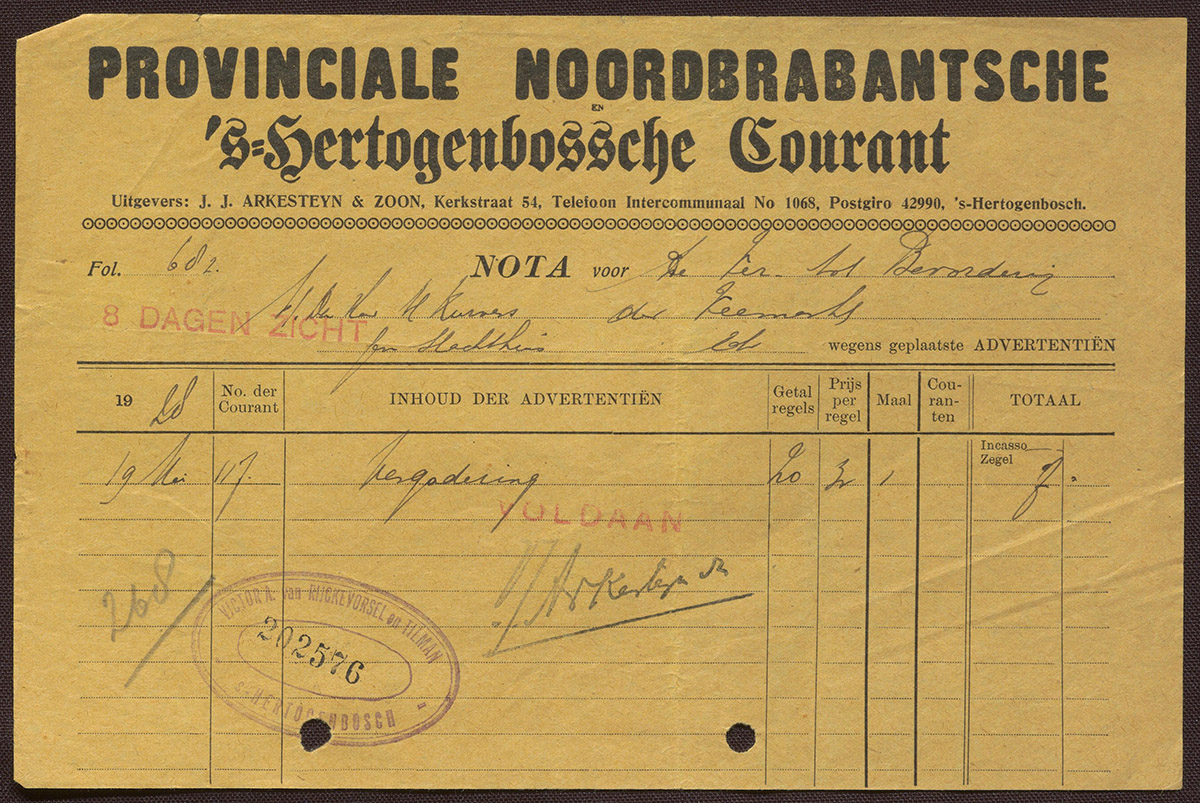 PROVINCIALE NOORDBRABANTSCHE
EN
's-Hertogenbossche Courant
Uitgevers: J. J. ARKESTEYN & ZOON, Kerkstraat 54, Telefoon Intercommunaal No 1068, Postgiro 42990, 's-Hertogenbosch.
Fol. 682. NOTA voor De Ver. tot Bevordering
H Kuivers der Veemarkt
8 DAGEN ZICHT
Slachthuis wegens geplaatste ADVERTENTIËN
1928 No. der Courant INHOUD DER ADVERTENTIËN Getal regels Prijs per regel Maal Cou-ran-ten TOTAAL
Incasso Zegel
19 Mei 117. Vergadering 20 1
VOLDAAN
268
VICTOR A. van RIJCKEVORSEL en TILMAN
202576
's-HERTOGENBOSCH